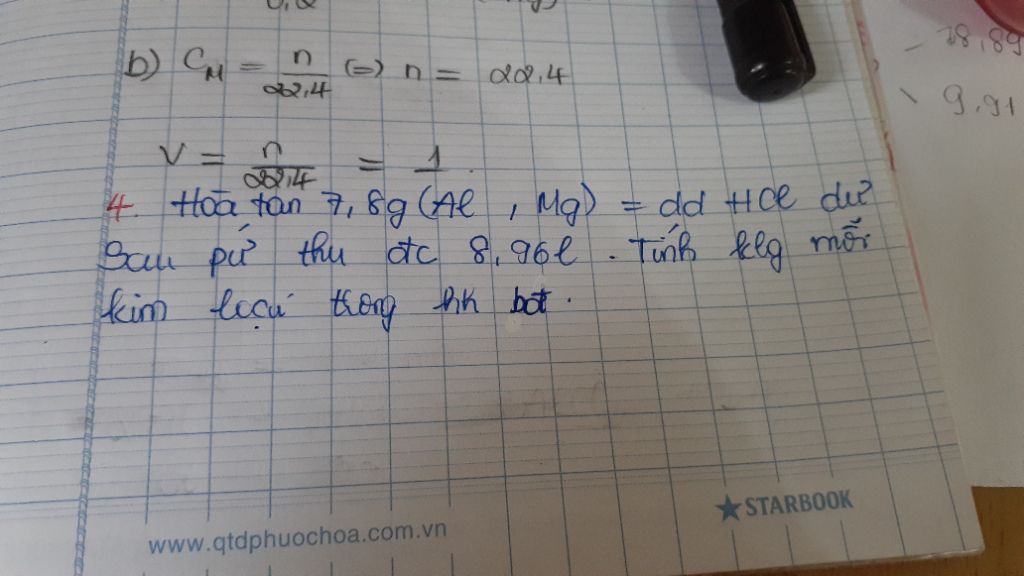 b) C_M = n/22,4 (=) n = 22,4
V = n/22,4 = 1
4. Hoà tan 7,8g (Al, Mg) = dd HCl dư
Sau pứ thu đc 8,96l. Tính klg mỗi
kim loại trong hh bột.
- 28,89
9,91
★STARBOOK
www.qtdphuochoa.com.vn